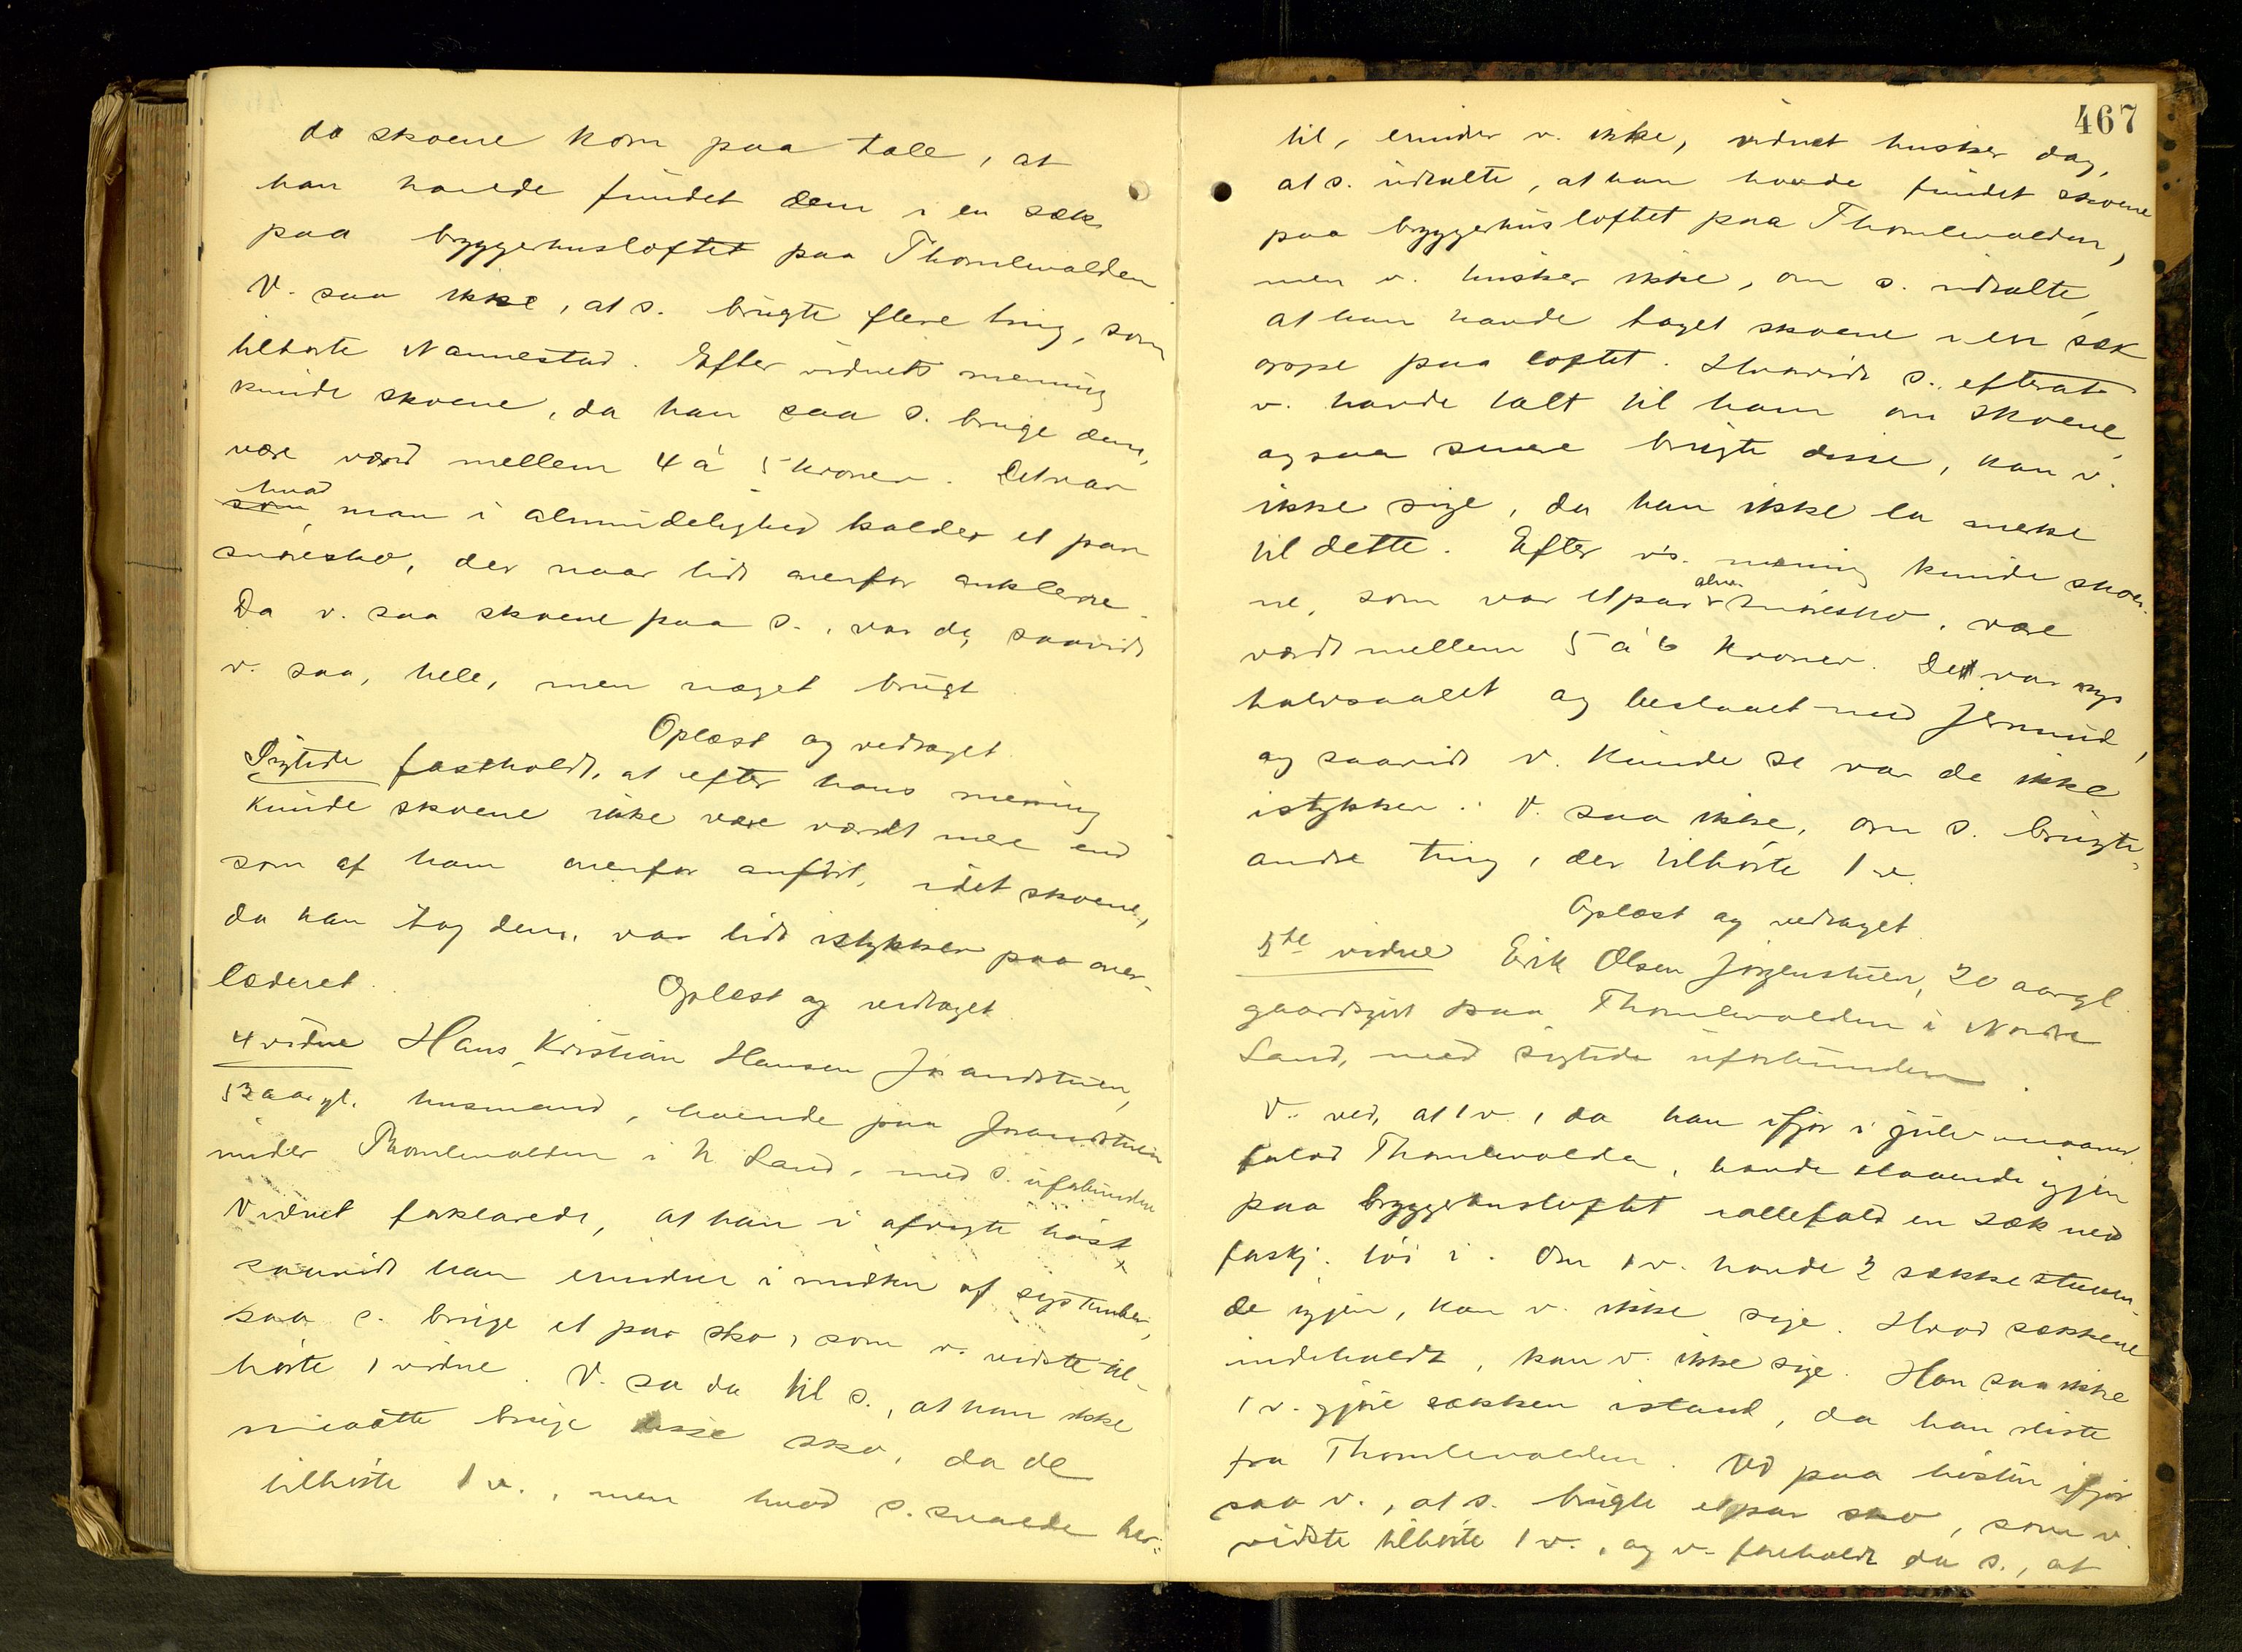 da skoene kom paa tale, at
han havde fundet dem i en sæk
paa byggerhusloftet paa Thomlevolden
V. saa ikke, at s. brugte flere ting, som
tilhørte Nannestad. Efter vidnets mening
kunde skoene, da han saa s. bruge dem,
være værd mellem 4 à 5 kroner. Det var
hvad
som man i almindelighed kalder et par
snøresko, der naar lidt ovenfor anklerne.
Da v. saa skoene paa s., var de, saavidt
v. saa, hele, men noget brugt
Oplæst og vedtaget.
Sigtede fastholdt, at efter hans mening
kunde skoene ikke være værdt mere end
som af ham ovenfor anført, idet skoene,
da han tog dem, var lidt istykker paa over-
læderet.
Oplæst og vedtaget
4 vidne Hans Kristian Hansen Jørandstuen,
53 aar gl. husmand, boende paa Jørandstuen
under Thomlevolden i N. Land, med s. uforbunden
Vidnet forklarede, at han i afvigte høst,
saavidt han erindrer i midten af september,
saa s. bruge et par sko, som v. vidste til-
hørte 1 vidne. V. sa da til s., at han ikke
maatte bruge disse sko, da de
tilhørte 1 v., men hvad s. svarede her-
467
til, erindrer v. ikke, vidnet husker dog,
at s. udtalte, at han havde fundet skoene
paa byggerhusloftet paa Thomlevolden,
men v. husker ikke, om s. udtalte,
at han havde taget skoene i en sæk
oppe paa loftet. Hvorvidt s., efterat
v. havde talt til ham om skoene,
ogsaa senere brugte disse, kan v.
ikke sige, da han ikke la merke
til dette. Efter v's. mening kunde skoe-
ne, som var et par snøresko, være
værdt mellem 5 à 6 kroner. De var nys
halvsaalet og beslaaet med jernsud,
og saavidt v. kunde se var de ikke
istykker. V. saa ikke, om s. brugte
andre ting, der tilhørte 1 v.
Oplæst og vedtaget.
5te vidne Erik Olsen Jørgenstuen, 20 aar gl.
gaardsgut paa Thomlevolden i Nordre
Land, med sigtede uforbunden.
V. ved, at 1 v., da han ifjor i julemaaned
forlod Thomlevolden, havde staaende igjen
paa byggerhusloftet iallefald en sæk med
forskj. tøi i. Om 1 v. havde 2 sække staaen-
de igjen, kan v. ikke sige. Hvad sækkene
indeholdt, kan v. ikke sige. Han saa ikke
1 v. gjøre sækken istand, da han reiste
fra Thomlevolden. Ud paa høsten ifjor
saa v., at s. brugte et par sko, som v.
vidste tilhørte 1 v., og v. foreholdt da s., at